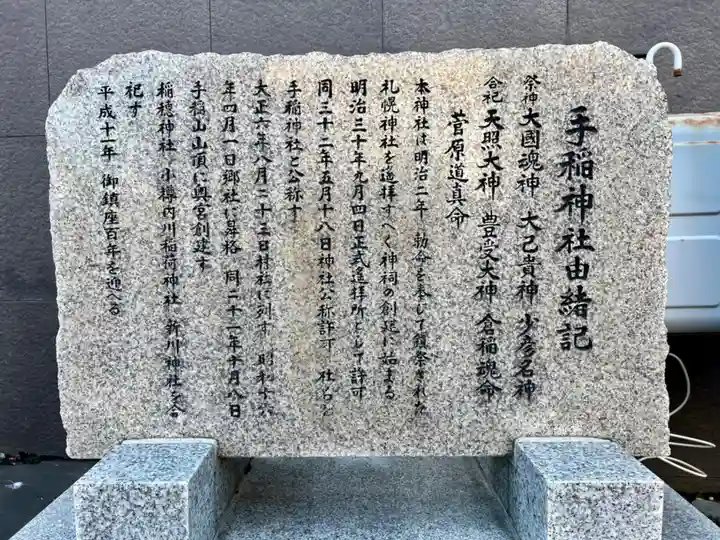 手稲神社由緒記
祭神 大國魂神 大己貴神 少彦名神
合祀 天照大神 豊受大神 倉稲魂命
菅原道真命
本神社は明治二年 勅命を奉じて鎮祭された
札幌神社を遥拝すべく神祠の創起に始まる
明治三十年九月四日正式遥拝所として許可
同三十二年五月十八日神社公称許可 社名を
手稲神社と公称す
大正六年八月二十三日村社に列す 昭和十八
年四月一日郷社に昇格 同二十一年十月八日
手稲山山頂に奥宮創建す
稲穂神社 小樽内川稲荷神社 新川神社を合
祀す
平成十一年 御鎮座百年を迎へる